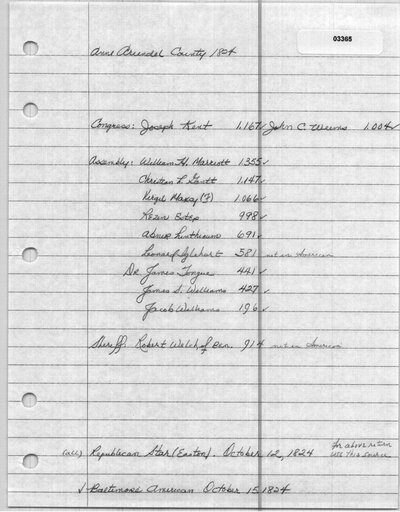 03365
Anne Arundel County 1824
Congress: Joseph Kent 1.167✓ John C. Weems 1.004✓
Assembly: William H. Marriott 1355✓
Christian L. Gantt 1.147✓
Virgil Maxcy (F) 1.066✓
Rezin Estep 998✓
Abner Linthicum 691✓
Leonard Iglehart 581 not in American
Dr James Tongue 441✓
James S. Williams 427✓
Jacob Williams 196✓
Sheriff: Robert Welch of Ben. 914 not in American
(all) Republican Star (Easton). October 12, 1824
for above return
use this source
✓ Baltimore American October 15, 1824